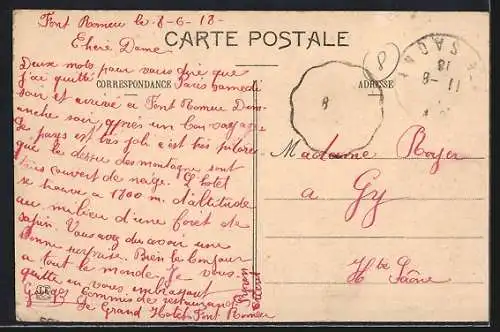 Font Romeu le 8-6-18-
Chère Dame
CARTE POSTALE
CORRESPONDANCE
ADRESSE
Deux mots pour vous dire que
j'ai quitté Paris Samedi
soir et arrivé a Font Romeu Dim-
anche soir après un bon voyage
le pays est très joli c'est très pitores
que le dessus des montagne sont
tous couvert de neige. L'hotel
se trouve a 1800 m. d'altitude
au milieu d'une forêt de
sapin. Vous avez du avoir une
bonne surprise. Bien le bonjour
a tout le monde. Je vous
quitte en vous embrassant
Georges commis de restaurant
Le Grand Hotel Font Romeu
Madame Royer
a Gy
Hte Saône
8
8
18
11-6